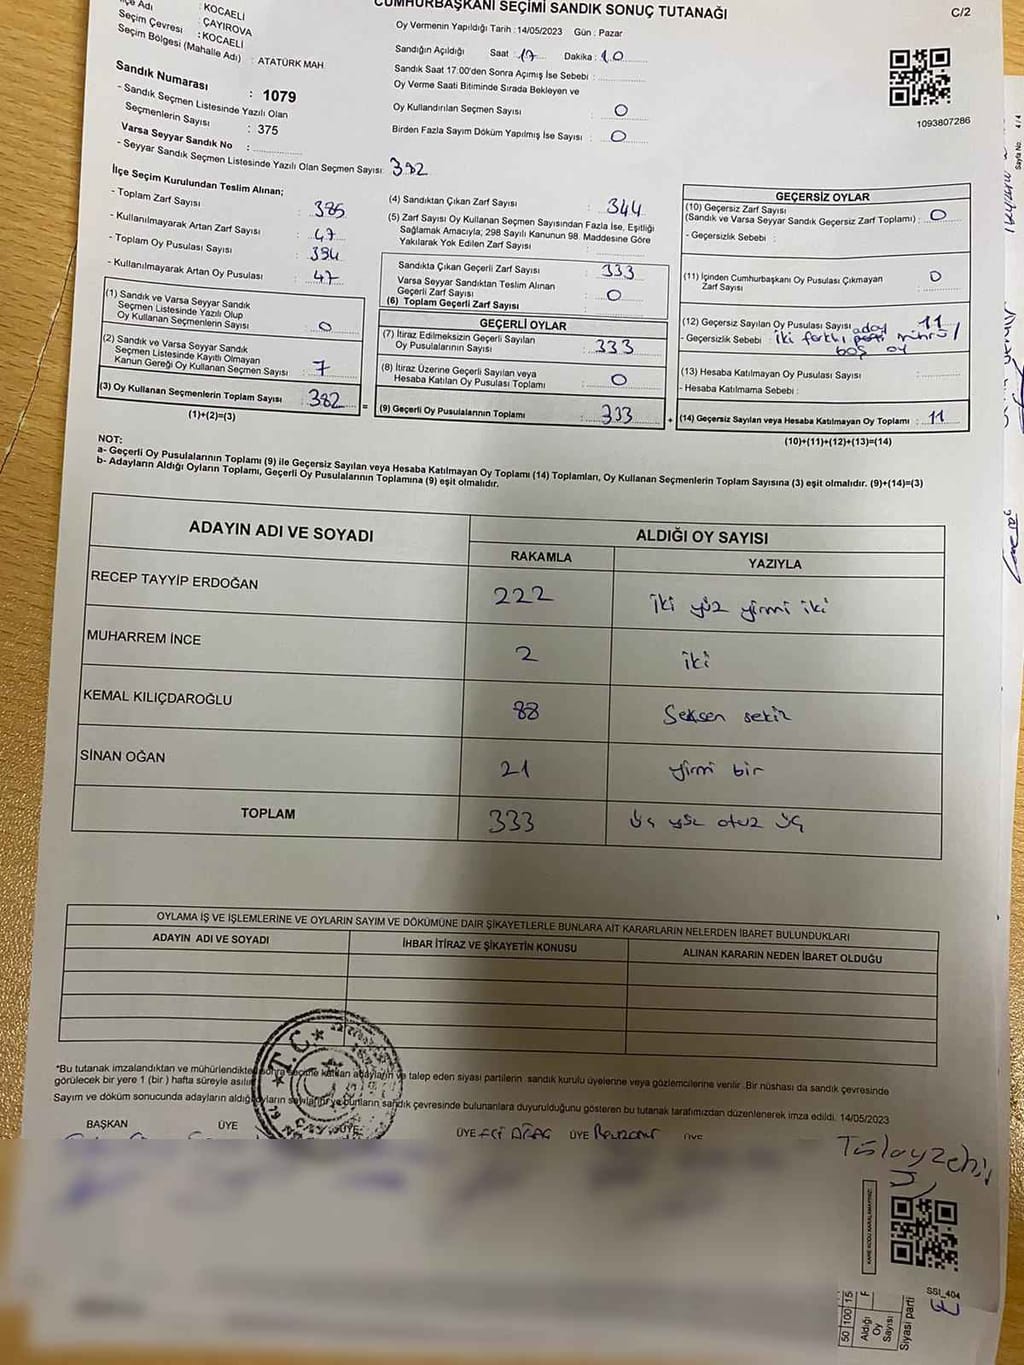 CUMHURBAŞKANI SEÇİMİ SANDIK SONUÇ TUTANAĞI
C/2
: KOCAELİ
İlçe Adı : ÇAYIROVA
Seçim Çevresi : KOCAELİ
Seçim Bölgesi (Mahalle Adı) : ATATÜRK MAH.
Oy Vermenin Yapıldığı Tarih : 14/05/2023 Gün : Pazar
Sandığın Açıldığı Saat : 17 Dakika : 10
Sandık Saat 17:00'den Sonra Açımış İse Sebebi :
Oy Verme Saati Bitiminde Sırada Bekleyen ve
Oy Kullandırılan Seçmen Sayısı : 0
Birden Fazla Sayım Döküm Yapılmış İse Sayısı : 0
1093807286
Sandık Numarası : 1079
- Sandık Seçmen Listesinde Yazılı Olan
Seçmenlerin Sayısı : 375
Varsa Seyyar Sandık No :
- Seyyar Sandık Seçmen Listesinde Yazılı Olan Seçmen Sayısı: 382
İlçe Seçim Kurulundan Teslim Alınan;
- Toplam Zarf Sayısı : 385
- Kullanılmayarak Artan Zarf Sayısı : 47
- Toplam Oy Pusulası Sayısı : 394
- Kullanılmayarak Artan Oy Pusulası : 47
(1) Sandık ve Varsa Seyyar Sandık
Seçmen Listesinde Yazılı Olup
Oy Kullanan Seçmenlerin Sayısı : 0
(2) Sandık ve Varsa Seyyar Sandık
Seçmen Listesinde Kayıtlı Olmayan
Kanun Gereği Oy Kullanan Seçmen Sayısı : 7
(3) Oy Kullanan Seçmenlerin Toplam Sayısı : 382
(1)+(2)=(3)
(4) Sandıktan Çıkan Zarf Sayısı : 344
(5) Zarf Sayısı Oy Kullanan Seçmen Sayısından Fazla İse, Eşitliği
Sağlamak Amacıyla; 298 Sayılı Kanunun 98. Maddesine Göre
Yakılarak Yok Edilen Zarf Sayısı :
Sandıkta Çıkan Geçerli Zarf Sayısı : 333
Varsa Seyyar Sandıktan Teslim Alınan
Geçerli Zarf Sayısı : 0
(6) Toplam Geçerli Zarf Sayısı
GEÇERLİ OYLAR
(7) İtiraz Edilmeksizin Geçerli Sayılan
Oy Pusulalarının Sayısı : 333
(8) İtiraz Üzerine Geçerli Sayılan veya
Hesaba Katılan Oy Pusulası Toplamı : 0
= (9) Geçerli Oy Pusulalarının Toplamı : 333 +
GEÇERSİZ OYLAR
(10) Geçersiz Zarf Sayısı
(Sandık ve Varsa Seyyar Sandık Geçersiz Zarf Toplamı) : 0
- Geçersizlik Sebebi :
(11) İçinden Cumhurbaşkanı Oy Pusulası Çıkmayan
Zarf Sayısı : 0
(12) Geçersiz Sayılan Oy Pusulası Sayısı : 11
aday
- Geçersizlik Sebebi : iki farklı parti mührü /
boş oy
(13) Hesaba Katılmayan Oy Pusulası Sayısı :
- Hesaba Katılmama Sebebi :
(14) Geçersiz Sayılan veya Hesaba Katılmayan Oy Toplamı : 11
(10)+(11)+(12)+(13)=(14)
NOT:
a- Geçerli Oy Pusulalarının Toplamı (9) ile Geçersiz Sayılan veya Hesaba Katılmayan Oy Toplamı (14) Toplamları, Oy Kullanan Seçmenlerin Toplam Sayısına (3) eşit olmalıdır. (9)+(14)=(3)
b- Adayların Aldığı Oyların Toplamı, Geçerli Oy Pusulalarının Toplamına (9) eşit olmalıdır.
ADAYIN ADI VE SOYADI ALDIĞI OY SAYISI
RAKAMLA YAZIYLA
RECEP TAYYİP ERDOĞAN 222 iki yüz yirmi iki
MUHARREM İNCE 2 iki
KEMAL KILIÇDAROĞLU 88 Seksen sekiz
SİNAN OĞAN 21 yirmi bir
TOPLAM 333 üç yüz otuz üç
OYLAMA İŞ VE İŞLEMLERİNE VE OYLARIN SAYIM VE DÖKÜMÜNE DAİR ŞİKAYETLERLE BUNLARA AİT KARARLARIN NELERDEN İBARET BULUNDUKLARI
ADAYIN ADI VE SOYADI İHBAR İTİRAZ VE ŞİKAYETİN KONUSU ALINAN KARARIN NEDEN İBARET OLDUĞU
*Bu tutanak imzalandıktan ve mühürlendikten sonra seçime katılan adayların ve talep eden siyasi partilerin sandık kurulu üyelerine veya gözlemcilerine verilir. Bir nüshası da sandık çevresinde
görülecek bir yere 1 (bir) hafta süreyle asılır.
Sayım ve döküm sonucunda adayların aldığı oyların sayılarını ve bunların sandık çevresinde bulunanlara duyurulduğunu gösteren bu tutanak tarafımızdan düzenlenerek imza edildi. 14/05/2023
BAŞKAN ÜYE ÜYE ÜYE ÜYE ÜYE
T.C.
KARE KODU KARALAMAYINIZ
SS1_404
50 100 15
Aldığı
Oy
Sayısı
Siyasi parti
Sayfa No. 4 / 4